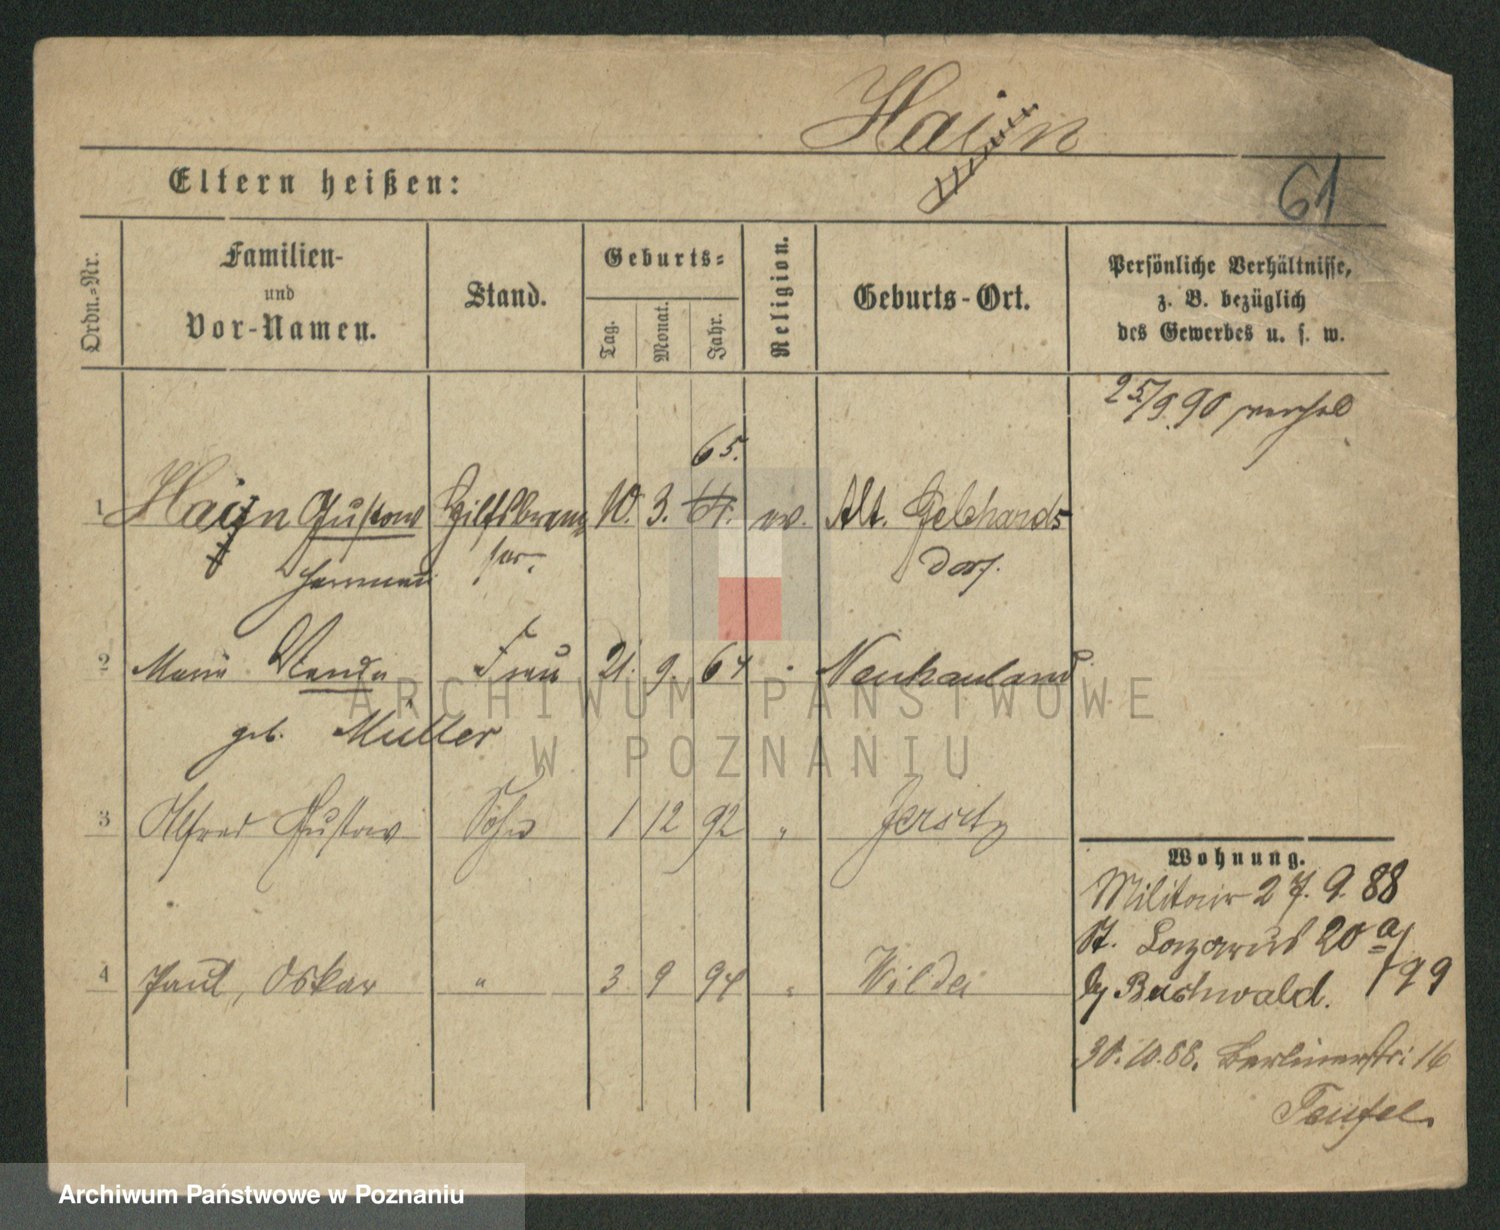 Hain
Eltern heißen:
61
Ordn.-Nr.
Familien-
und
Vor-Namen.
Stand.
Geburts-
Tag.
Monat.
Jahr.
Religion.
Geburts-Ort.
Persönliche Verhältnisse,
z. B. bezüglich
des Gewerbes u. s. w.
25/9.90
65.
1 Hain Gustav Hilfsbrem 10. 3. 64. ev. Alt. Gebhards
Herrmann ser. dorf.
2 Marie Wanda Frau 21. 9. 64 " Neukauland
geb. Müller
3 Alfred Gustav Sohn 1 12 92 " Jersitz
4 Paul, Oskar " 3 9 94 " Wilda
Wohnung.
Militair 27. 9. 88
St. Lazarus 20 a/99
by Buchwald.
30.10.88. Berlinerstr: 16
Teufel.
ARCHIWUM PAŃSTWOWE
W POZNANIU
Archiwum Państwowe w Poznaniu